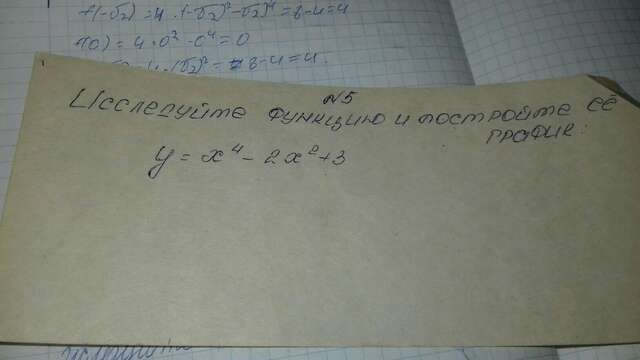 f(-√2) = 4 · (-√2)² - √2)⁴ = 8 - 4 = 4
f(0) = 4 · 0² - 0⁴ = 0
8 - 4 = 4.
N5
Исследуйте функцию и постройте её
график:
y = x⁴ - 2x² + 3